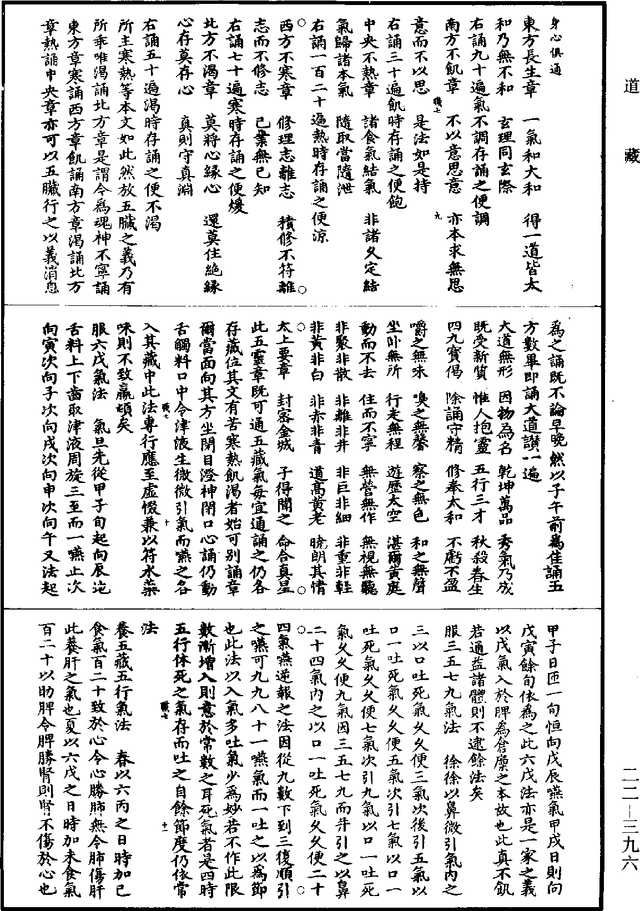 道藏
身心俱通
東方長生章　一氣和大和　得一道皆太
和乃無不和　玄理同玄際
右誦九十遍氣不調存誦之便調
南方不飢章　不以意思意　亦本求無思
意而不以思　是法如是持
右誦三十遍飢時存誦之便飽
中央不熱章　諸食氣結氣　非諸久定結
氣歸諸本氣　隨取當隨泄
右誦一百二十遍熱時存誦之便涼
西方不寒章　修理志離志　積修不符離
志而不修志　己業無己知
右誦七十遍寒時存誦之便煖
北方不渴章　莫將心緣心　還莫住絕緣
心存莫存心　真則守真淵
右誦五十遍渴時存誦之便不渴
所主寒熱等本文如此然放五臟之義乃有
所乖唯渴誦北方章是謂今為魂神不寧誦
東方章寒誦西方章飢誦南方章渴誦北方
章熱誦中央章亦可以五臟行之以義消息
為之誦既不論早晚然以子午前為佳誦五
方數畢即誦大道讚一遍
大道無形　因物為名　乾坤萬品　秀氣乃成
既受新質　惟人抱靈　五行三才　秋殺春生
四九寶偈　除誦守精　修奉太和　不虧不盈
嚼之無味　嗅之無馨　察之無色　和之無聲
坐卧無所　行走無程　遊歷太空　湛爾黃庭
動而不去　住而不寧　無營無作　無視無聽
非聚非散　非離非并　非巨非細　非重非輕
非黃非白　非赤非青　道高黃老　曉朗其情
太上要章　封密金城　子得聞之　命合真星
此五靈章既可通五藏氣每宜通誦之仍各
存藏位其文有苦寒熱飢渴者始可別誦章
爾當面向其方坐閉目澄神閉口心誦仍動
舌觸料口中令津液生微微引氣而嚥之各
入其藏中此法專行應至虛惙兼以符水藥
味則不致羸頓矣
服六戊氣法　氣旦先從甲子旬起向辰迄
舌料上下齒取津液周旋三至而一嚥止次
向寅次向子次向戌次向申次向午又法起
甲子日匝一旬恒向戊辰嚥氣甲戌日則向
戊寅餘旬依為之此六戊法亦是一家之義
以戊氣入於脾為倉廩之本故也此真不飢
若通益諸體則不逮餘法矣
服三五七九氣法　徐徐以鼻微引氣内之
三以口一吐死氣久久便三氣次後引五氣以
口一吐死氣久久便五氣次引七氣以口一
吐死氣久久便七氣次引九氣以口一吐死
氣久久便九氣因三五七九而并引之以鼻
二十四氣内之以口一吐死氣久久便二十
四氣嚥逆報之法因從九數下到三復順引
之嚥可九九八十一嚥氣而一吐之以為節
也此法以入氣多吐氣少為妙若不作此限
數漸增入則意於常數之耳死氣者是四時
五行休死之氣存而吐之自餘節度仍依常
法
養五藏五行氣法　春以六丙之日時加巳
食氣百二十致於心令心勝肺無令肺傷肝
此養肝之氣也夏以六戊之日時加未食氣
百二十以助脾令脾勝腎則腎不傷於心也
二二—三九六